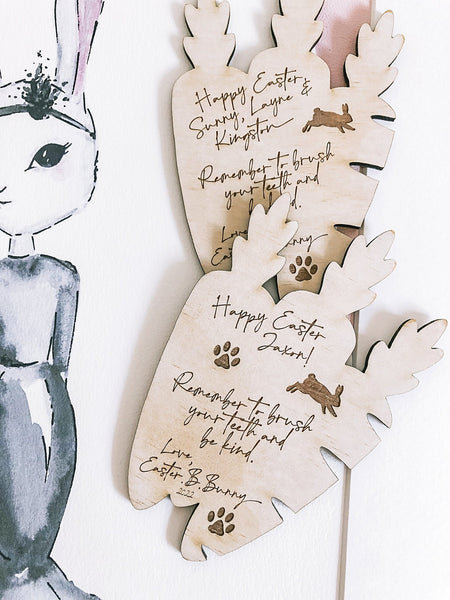 Happy Easter
Sunny, Layne &
Kingston
Remember to brush
your teeth and
kind.
Love
Happy Easter
Jaxon!
Remember to brush
your teeth and
be kind.
Love,
Easter. B. Bunny
2022